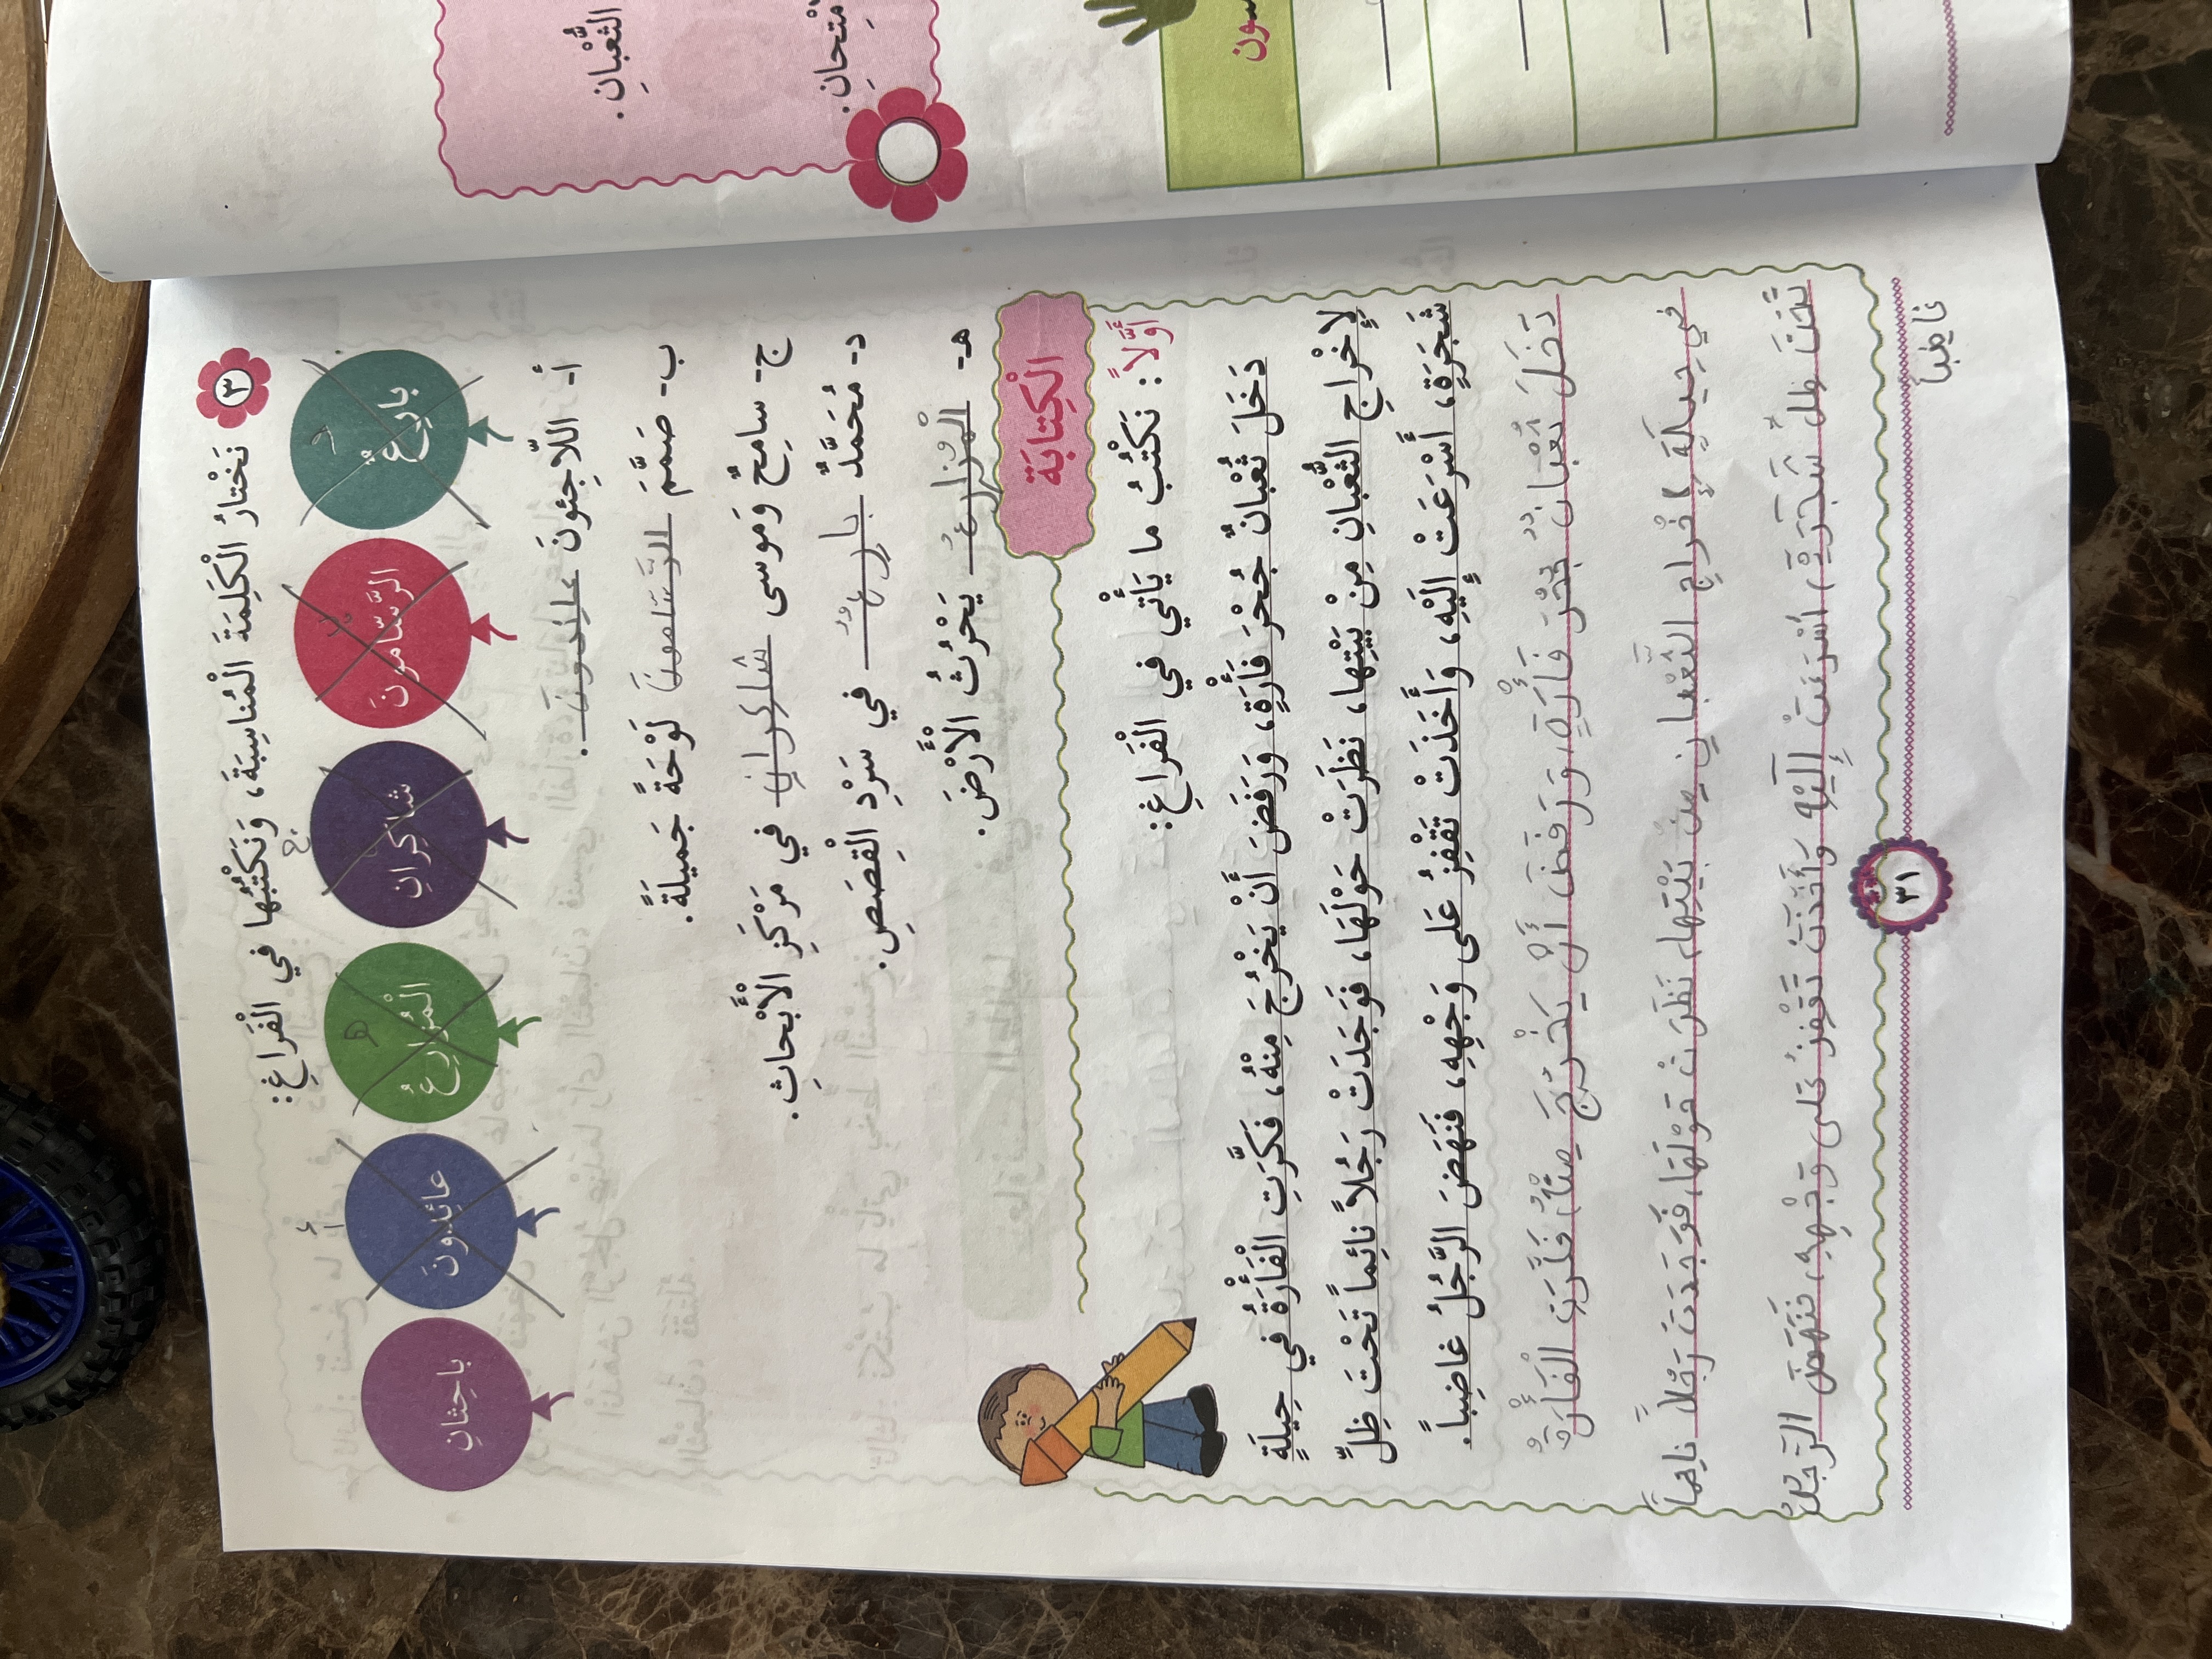 الثُّعْبانِ.
مْتِحانِ.
سون
٣
نَخْتارُ الْكَلِمَةَ الْمُناسِبَةَ، وَنَكْتُبُها في الْفَراغِ:
بارِعٌ
الرَّسّامونَ
شاكِرانِ
الْمُزارِعُ
عائِدونَ
باحِثانِ
د
ب
ج
هـ
أ
أ- اللّاجِئونَ عائدونَ.
ب- صَمَّمَ الرَّسّامونَ لَوْحَةً جَميلَةً.
ج- سامِحٌ وَموسى شاكران في مَرْكَزِ الْأَبْحاثِ.
د- مُحَمَّدٌ بارعٌ في سَرْدِ الْقِصَصِ.
هـ- الْمُزارعُ يَحْرُثُ الْأَرْضَ.
الْكِتابَة
أَوَّلاً: نَكْتُبُ ما يَأْتي في الْفَراغِ:
دَخَلَ ثُعْبانٌ جُحْرَ فَأْرَةٍ، وَرَفَضَ أَنْ يَخْرُجَ مِنْهُ، فَكَّرَتِ الْفَأْرَةُ في حِيلَةٍ
لِإِخْراجِ الثُّعْبانِ مِنْ بَيْتِها، نَظَرَتْ حَوْلَهَا، فَوَجَدَتْ رَجُلاً نائِماً تَحْتَ ظِلِّ
شَجَرَةٍ، أَسْرَعَتْ إِلَيْهِ، وَأَخَذَتْ تَقْفِزُ عَلى وَجْهِهِ، فَنَهَضَ الرَّجُلُ غاضِباً.
دَخَلَ ثُعْبان جُحْرَ فَأْرَةٍ، وَرَفَضَ أَنْ يَخْرُجَ مِنْهُ، فَكَّرَتِ الْفَأْرَةُ
في حِيلَةٍ لإِخْراجِ الثُّعْبانِ مِنْ بَيْتِها، نَظَرَتْ حَوْلَهَا، فَوَجَدَتْ رَجُلاً نائِماً
تَحْتَ ظِلِّ شَجَرَةٍ، أَسْرَعَتْ إِلَيْهِ وَأَخَذَتْ تَقْفِزُ عَلى وَجْهِهِ، فَنَهَضَ الرَّجُلُ
غاضِباً
٣١